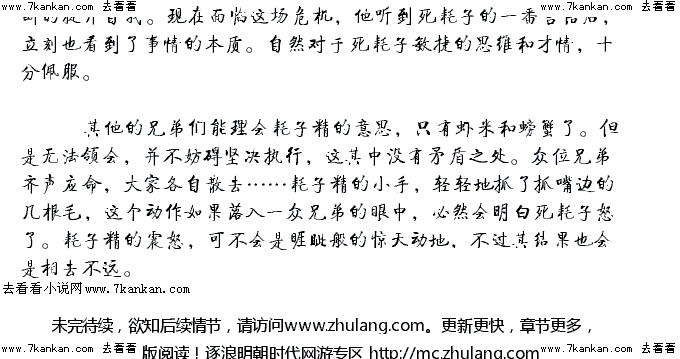 断的提升自我。现在面临这场危机，他听到死耗子的一番言语后，
www.7kankan.com 去看看 www.7kankan.com 去看看 www.7kankan.com 去看看
立刻也看到了事情的本质。自然对于死耗子敏捷的思维和才情，十
分佩服。
其他的兄弟们能理会耗子精的意思，只有虾米和螃蟹了。但
是无法领会，并不妨碍坚决执行，这其中没有矛盾之处。众位兄弟
齐声应命，大家各自散去……耗子精的小手，轻轻地抓了抓嘴边的
几根毛，这个动作如果落入一众兄弟的眼中，必然会明白死耗子怒
了。耗子精的震怒，可不会是睚眦般的惊天动地，不过其结果也会
是相去不远。
去看看小说网www.7kankan.com
未完待续，欲知后续情节，请访问www.zhulang.com。更新更快，章节更多，
www.7kankan.com 去看看 www.7kankan.com 去看看
版阅读！逐浪明朝时代网游专区 http://mc.zhulang.com